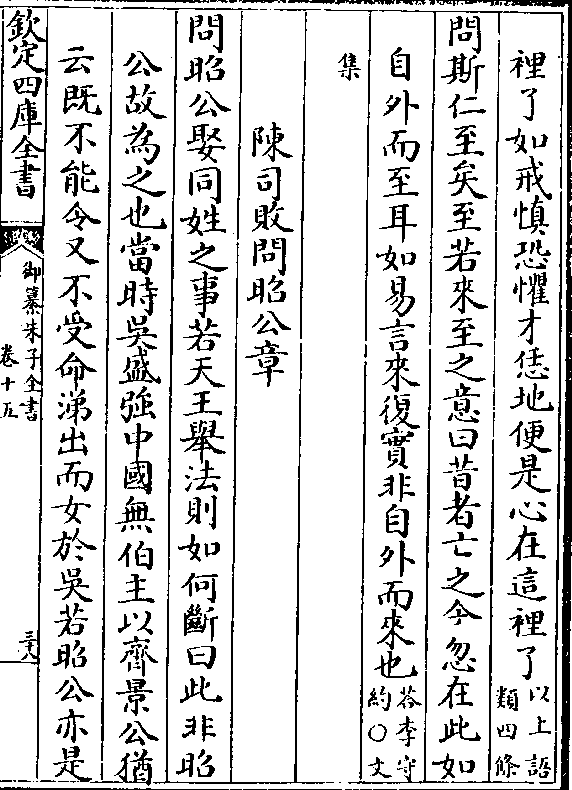 裡了如戒慎恐懼才恁地便是心在這裡了以上語
類四條
問斯仁至矣至若來至之意曰昔者亡之今忽在此如
自外而至耳如易言來復實非自外而來也答李守
約○文
集
陳司敗問昭公章
問昭公娶同姓之事若天王舉法則如何斷曰此非昭
公故為之也當時吳盛強中國無伯主以齊景公猶
云既不能令又不受命涕出而女於吳若昭公亦是
欽定四庫全書
御纂朱子全書
卷十五
三八